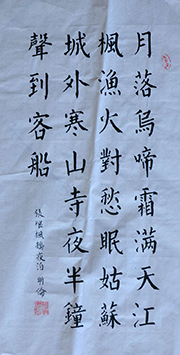 月落烏啼霜满天江
楓漁火對愁眠姑蘇
城外寒山寺夜半鐘
聲到客船
張繼楓橋夜泊